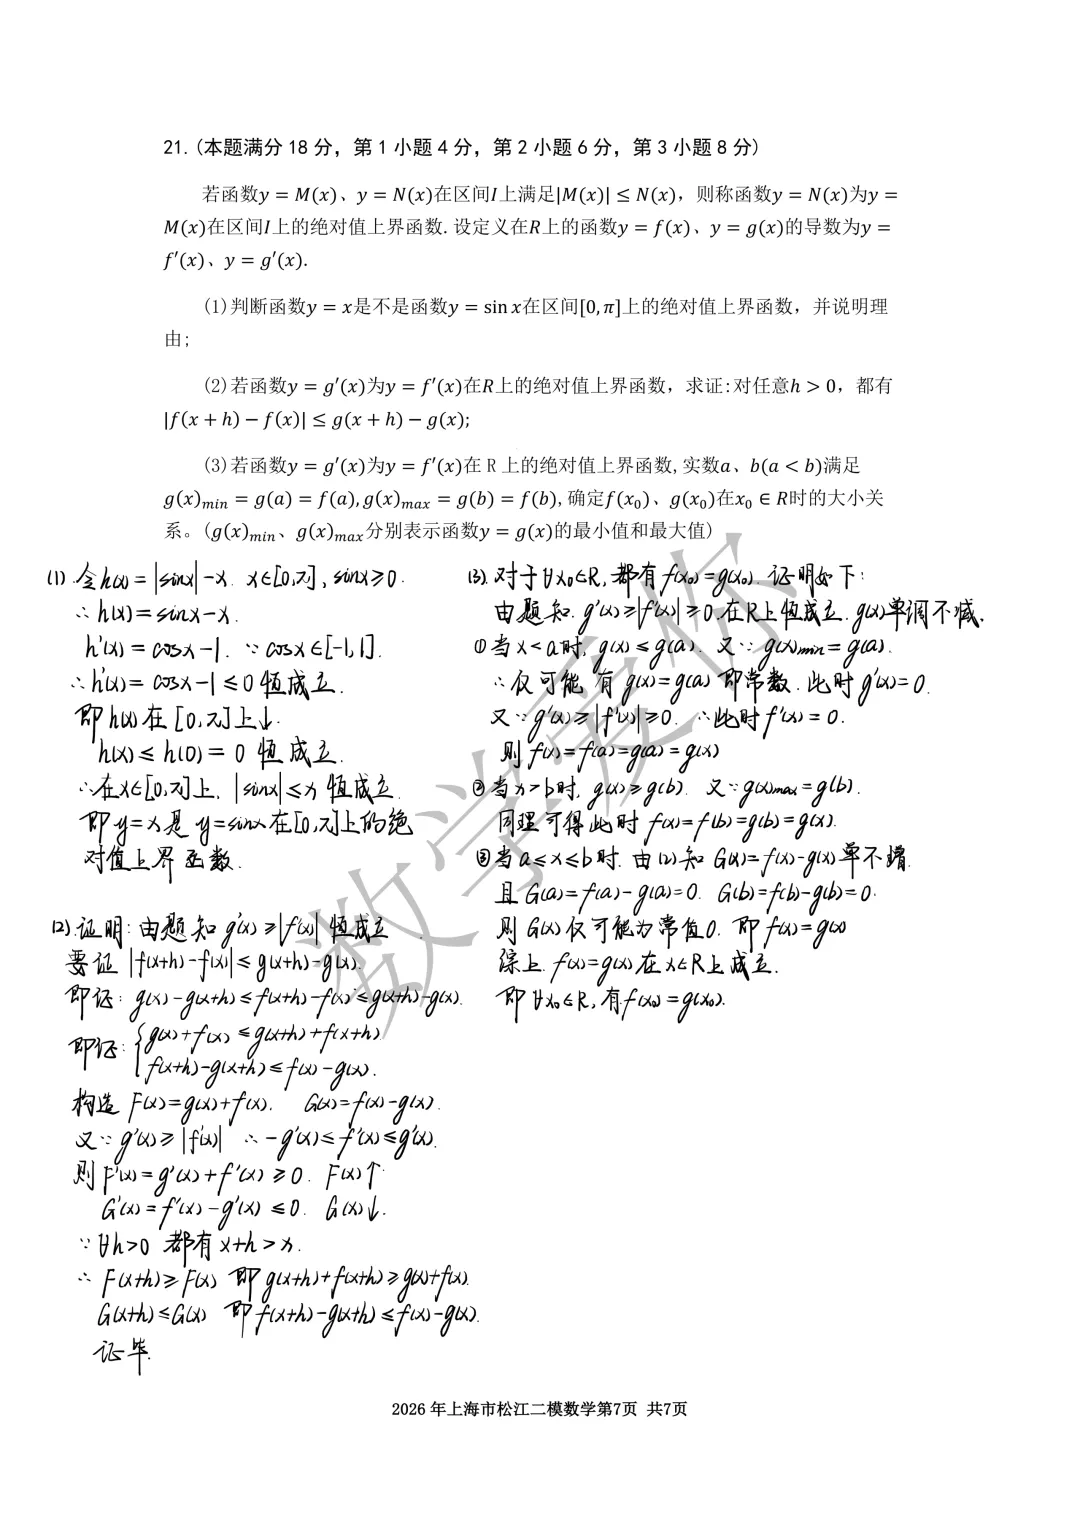 21.(本题满分 18 分，第 1 小题 4 分，第 2 小题 6 分，第 3 小题 8 分)
若函数y = M(x)、y = N(x)在区间I上满足|M(x)| ≤ N(x)，则称函数y = N(x)为y =
M(x)在区间I上的绝对值上界函数.设定义在R上的函数y = f(x)、y = g(x)的导数为y =
f′(x)、y = g′(x).
(1)判断函数y = x是不是函数y = sin x在区间[0, π]上的绝对值上界函数，并说明理
由;
(2)若函数y = g′(x)为y = f′(x)在R上的绝对值上界函数，求证:对任意h > 0，都有
|f(x + h) − f(x)| ≤ g(x + h) − g(x);
(3)若函数y = g′(x)为y = f′(x)在 R 上的绝对值上界函数,实数a、b(a < b)满足
g(x)min = g(a) = f(a), g(x)max = g(b) = f(b),确定f(x₀)、g(x₀)在x₀ ∈ R时的大小关
系。(g(x)min、g(x)max分别表示函数y = g(x)的最小值和最大值)
(1).令h(x)=|sinx|-x. x∈[0,π], sinx≥0.
∴h(x)=sinx-x.
h'(x)=cosx-1. ∵cosx∈[-1,1].
∴h'(x)=cosx-1≤0 恒成立.
即h(x)在[0,π]上↓.
h(x)≤h(0)=0 恒成立.
∴在x∈[0,π]上, |sinx|≤x 恒成立.
即y=x是 y=sinx在[0,π]上的绝
对值上界函数.
(2).证明:由题知g'(x)≥|f'(x)|恒成立
要证 |f(x+h)-f(x)|≤g(x+h)-g(x).
即证: g(x)-g(x+h)≤f(x+h)-f(x)≤g(x+h)-g(x).
即证: { g(x)+f(x)≤g(x+h)+f(x+h)
f(x+h)-g(x+h)≤f(x)-g(x).
构造 F(x)=g(x)+f(x). G(x)=f(x)-g(x).
又∵g'(x)≥|f'(x)| ∴-g'(x)≤f'(x)≤g'(x).
则F'(x)=g'(x)+f'(x)≥0. F(x)↑
G'(x)=f'(x)-g'(x)≤0. G(x)↓.
∵∀h>0 都有x+h>x.
∴F(x+h)≥F(x) 即g(x+h)+f(x+h)≥g(x)+f(x).
G(x+h)≤G(x) 即f(x+h)-g(x+h)≤f(x)-g(x).
证毕.
(3).对于∀x₀∈R,都有f(x₀)=g(x₀).证明如下:
由题知.g'(x)≥|f'(x)|≥0在R上恒成立.g(x)单调不减.
①当x<a时,g(x)≤g(a). 又∵g(x)min=g(a).
∴仅可能有g(x)=g(a)即常数.此时g'(x)=0.
又∵g'(x)≥|f'(x)|≥0. ∴此时f'(x)=0.
则f(x)=f(a)=g(a)=g(x)
②当x>b时, g(x)≥g(b). 又∵g(x)max=g(b).
同理可得此时 f(x)=f(b)=g(b)=g(x).
③当a≤x≤b时.由(2)知 G(x)=f(x)-g(x)单不增.
且G(a)=f(a)-g(a)=0. G(b)=f(b)-g(b)=0.
则G(x)仅可能为常值0.即f(x)=g(x)
综上.f(x)=g(x)在x∈R上成立.
即∀x₀∈R,有f(x₀)=g(x₀).
数学爱你
2026 年上海市松江二模数学第7页 共7页